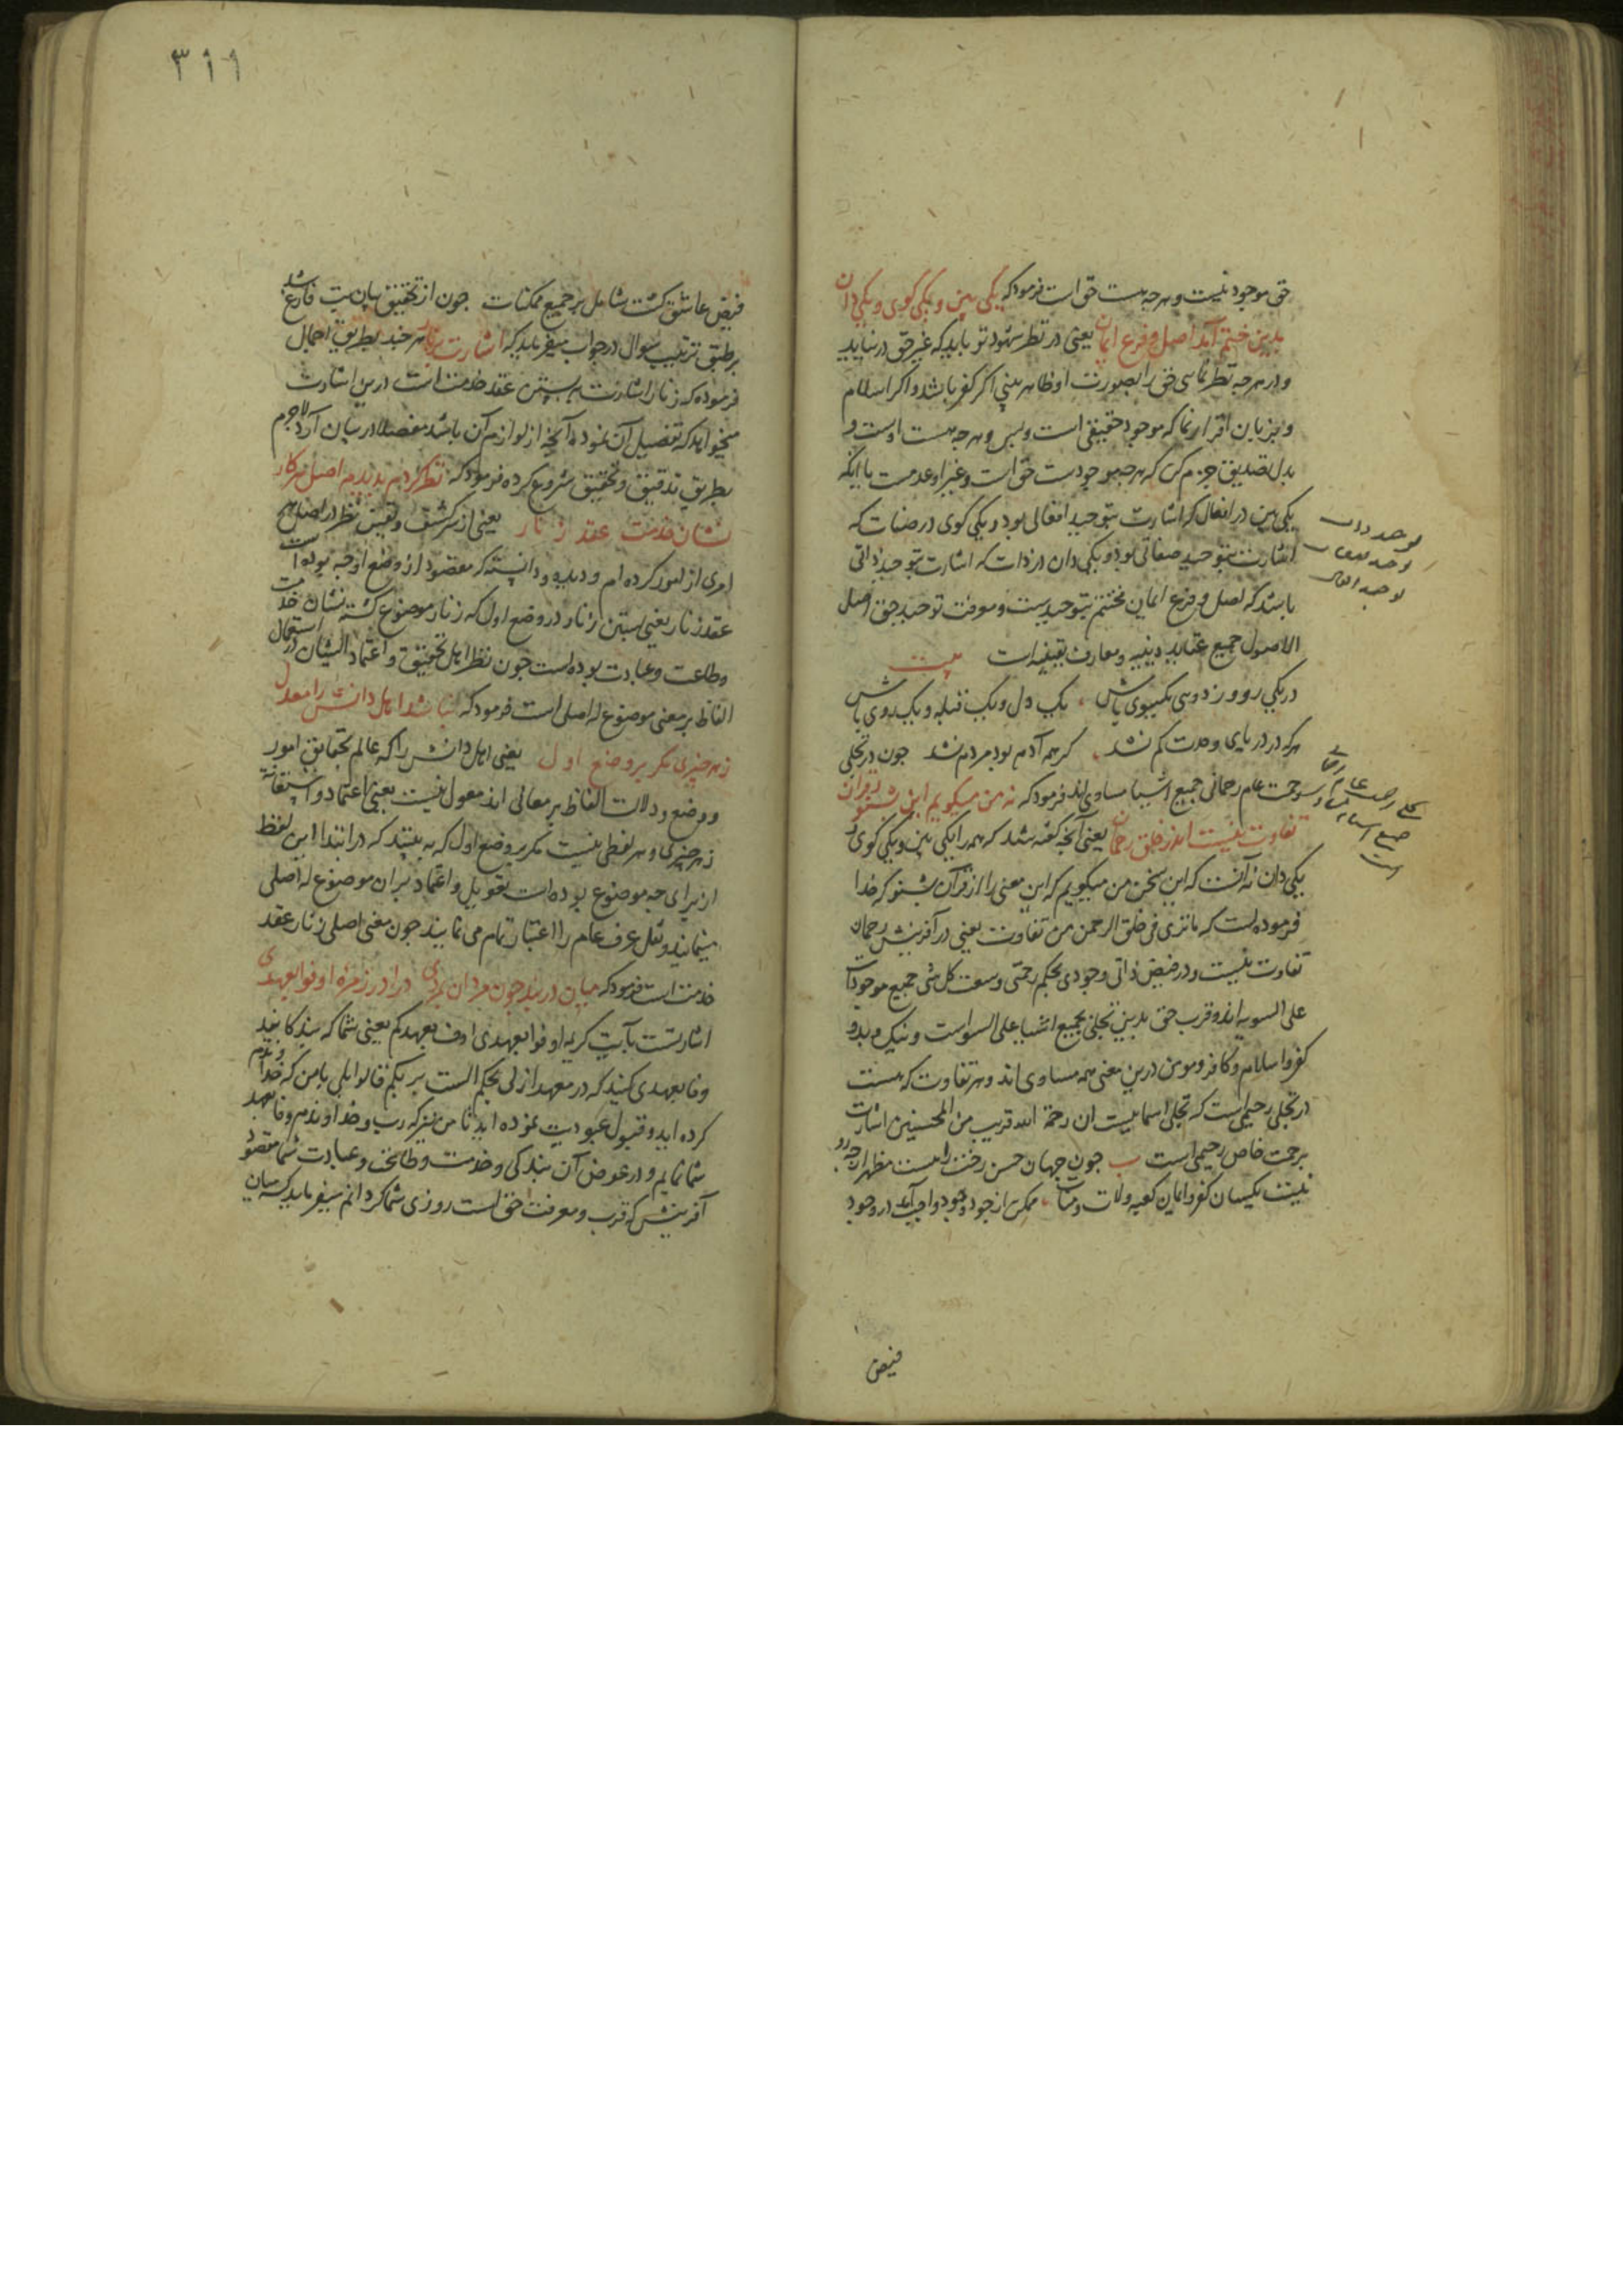 حق موجود نیست و هرچه هست حق است فرمود که یکی بین و یکی کوی و یکی دان
بدین ختم آمد اصل و فرع ایمان یعنی در نظر شهود تو باید که غیر حق در نیاید
و در هرچه نظر نمایی حق را بصورت او ظاهر بینی اکر کفر باشد و اکر اسلام
و بزبان اقرار نما که موجود حقیقی است و بس و هرچه هست اوست و
بدل تصدیق جزم کن که هرچه موجودست حق است و غیر او عدمست یا آنکه
یکی بین در افعال که اشارت بتوحید افعالی بود و یکی کوی در صفات که
اشارت بتوحید صفاتی بود و یکی دان در ذات که اشارت بتوحید ذاتی
باشد که اصل و فرع ایمان مختتم بتوحیدست و معرفت توحید حق اصل
الاصول جمیع عقاید دینیه و معارف یقینیه است بیت
در یکی رو وز دویی یکسوی باش یک دل و یک قبله و یک روی باش
هر که در دریای وحدت کم نشد کر همه آدم بود مردم نشد چون در تجلی
رحمت عام رحمانی جمیع اشیا مساوی اند فرمود که نه من میکویم این بشنو ز قرآن
تفاوت نیست اندر خلق رحمان یعنی آنچه کفته شد که همه را یکی بین و یکی کوی و
یکی دان نه آنست که این سخن من میکویم که این معنی را از قرآن بشنو که خدا
فرموده است که ما تری فی خلق الرحمن من تفاوت یعنی در آفرینش رحمان
تفاوت نیست و در فیض ذاتی وجودی بحکم رحمتی وسعت کل شی جمیع موجودات
علی السویه اند و قرب حق بدین تجلی بجمیع اشیا علی السواست و نیک و بد و
کفر و اسلام و کافر و مومن درین معنی همه مساوی اند و هر تفاوت که هست
در تجلی رحیمی است که تجلی اسماییست ان رحمة الله قریب من المحسنین اشارت
برحمت خاص رحیمی است ب چون جهان حسن رخت را هست مظهر از چه رو
نیست یکسان کفر و ایمان کعبه و لات و منات ممکن از جود وجود واجب آمد در وجود
توحید ذات
توحید صفات
توحید افعال
جمیع
است
فیض
۳۱۱
فیض عاشق کشت شامل بر جمیع ممکنات چون از تحقیق بیان بت فارغ شد
بر طبق ترتیب سوال در جواب میفرماید که اشارت بزنار هر چند بطریق اجمال
فرموده که زنار اشارت به بستن عقد خدمت است درین اشارت
میخواهد که تفصیل آن نموده آنچه از لوازم آن باشد مفصلا در بیان آرد لاجرم
بطریق تدقیق و تحقیق شروع کرده فرمود که نظر کردم بدیدم اصل هر کار
نشان خدمت عقد زنار یعنی از سر کشف و یقین نظر در اصل هر
امری از امور کرده ام و دیده و دانسته که مقصود از وضع او چه بوده است
عقد زنار یعنی بستن زنار در وضع اول که زنار موضوع کشته نشان خدمت
و طاعت و عبادت بوده است چون نظر اهل تحقیق و اعتماد ایشان در استعمال
الفاظ بر معنی موضوع له اصلی است فرمود که نباشد اهل دانش را معول
ز هر چیزی مکر بر وضع اول یعنی اهل دانش را که عالم بحقایق امور
و وضع و دلالت الفاظ بر معانی اند معول نیست یعنی اعتماد و استقامت
ز هر چیزی و هر لفظی نیست مکر بر وضع اول که به بینند که در ابتدا این لفظ
از برای چه موضوع بوده است تعویل و اعتماد بر آن موضوع له اصلی
مینمایند و نقل عرف عام را اعتبار تمام می نمایند چون معنی اصلی زنار عقد
خدمت است فرمود که میان دربند چون مردان بمردی درا در زمره اوفوا بعهدی
اشارتست بآیت کریمه اوفوا بعهدی اوف بعهدکم یعنی شما که بندکانید
وفا بعهدی کنید که در معهد ازلی بحکم الست بربکم قالوا بلی با من که خداوندم
کرده اید و قبول عبودیت نموده اید تا من نیز که رب و خداوندم وفا بعهد
شما نمایم و در عوض آن بندکی و خدمت و طاعت و عبادت شما مقصود
آفرینش که قرب و معرفت حق است روزی شما کردانم میفرماید که میان